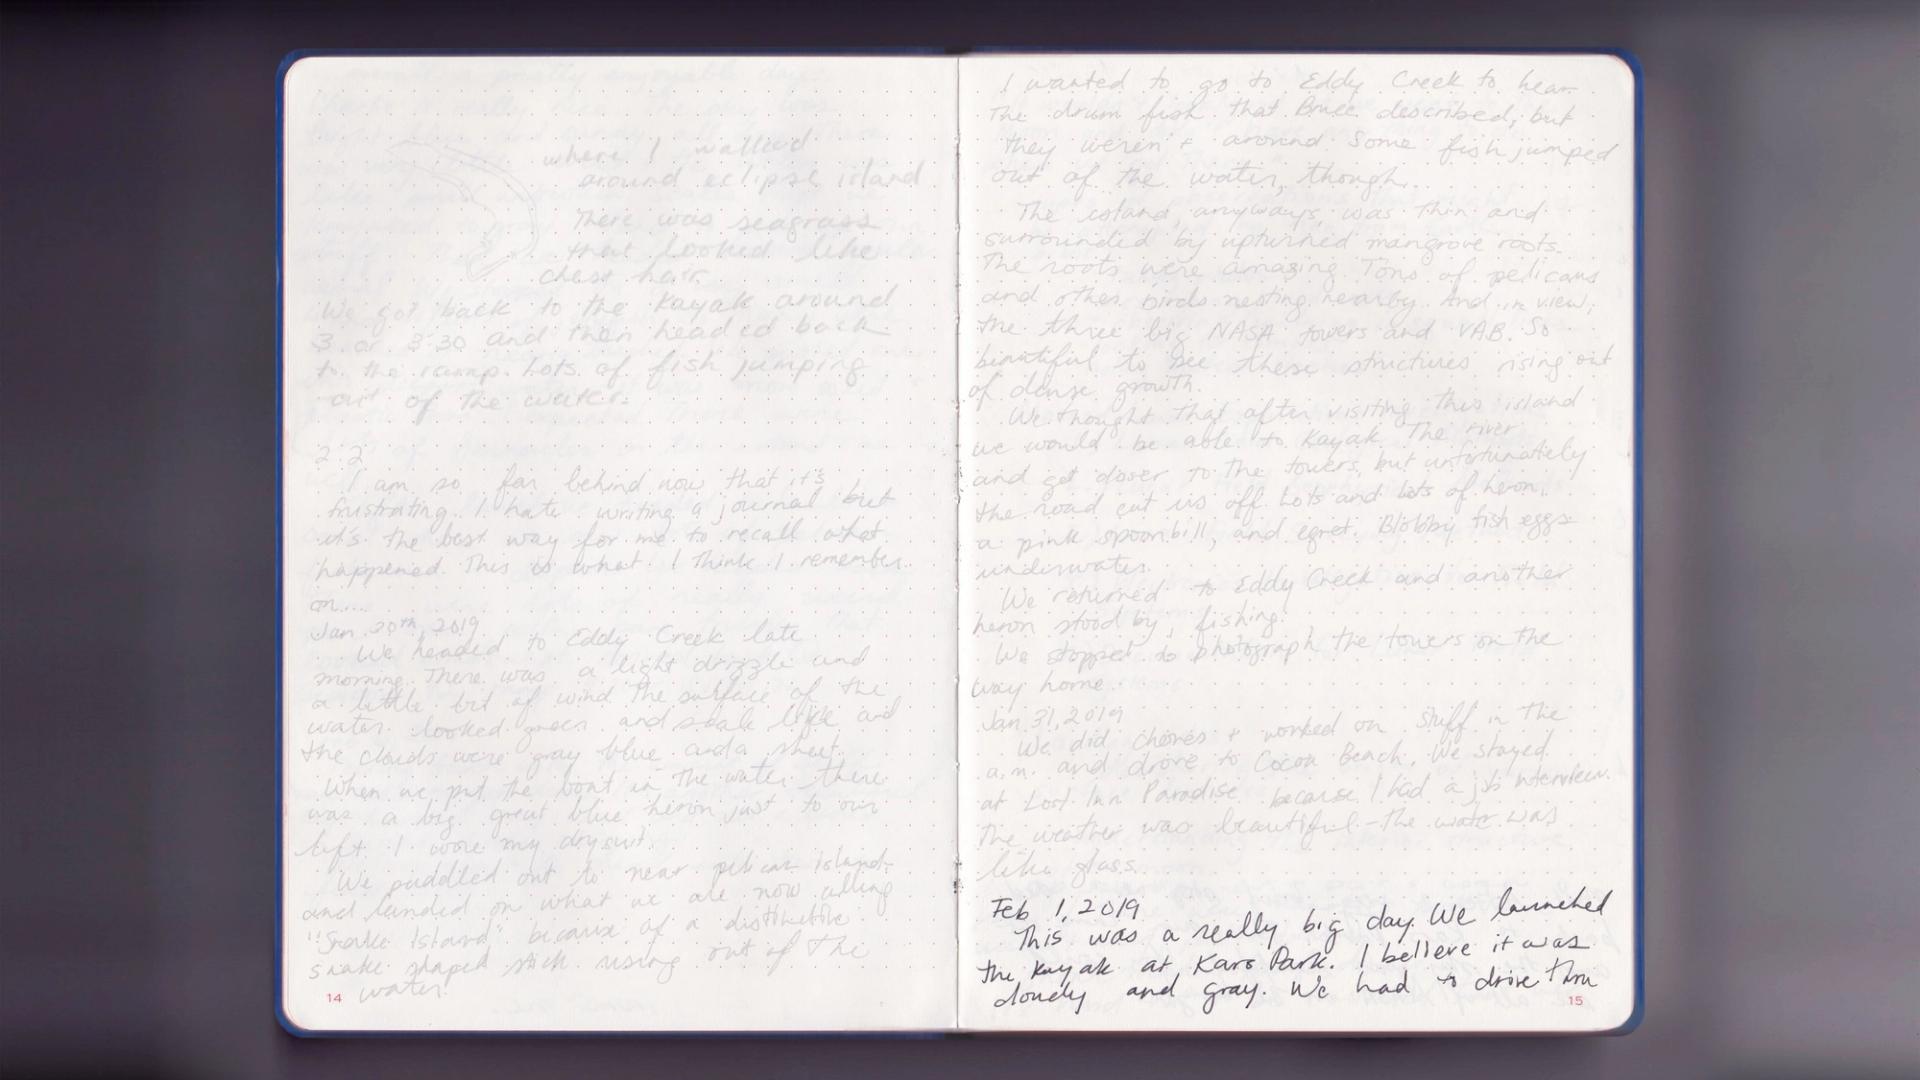 where I walked
around eclipse island
There was seagrass
that looked like
chest hair.
We got back to the kayak around
3 or 3:30 and then headed back
to the ramp. Lots of fish jumping
out of the water.
2.2
I am so far behind now that it's
frustrating. I hate writing a journal but
it's the best way for me to recall what
happened. This is what I think I remember
on....
Jan 20th 2019
We headed to Eddy Creek late
morning. There was a light drizzle and
a little bit of wind The surface of the
water looked green and scale like and
the clouds were gray blue and a sheet.
When we put the boat in the water there
was a big great blue heron just to our
left. I wore my drysuit.
We paddled out to near pelican island
and landed on what we are now calling
"Snake Island" because of a distinctive
snake shaped stick rising out of the
water.
14
I wanted to go to Eddy Creek to hear
The drum fish that Bruce described, but
they weren't around Some fish jumped
out of the water, though.
The island, anyways, was thin and
surrounded by upturned mangrove roots.
The roots were amazing. Tons of pelicans
and other birds nesting nearby. And in view,
the three big NASA towers and VAB. So
beautiful to see these structures rising out
of dense growth.
We thought that after visiting this island
we would be able to kayak The river
and get closer to the towers, but unfortunately
the road cut us off. Lots and lots of heron,
a pink spoonbill, and egret. Blobby fish eggs
underwater.
We returned to Eddy Creek and another
heron stood by, fishing.
We stopped to photograph the towers on the
way home.
Jan 31, 2019
We did chores + worked on stuff in the
a.m. and drove to Cocoa Beach. We stayed
at Lost Inn Paradise because I had a job interview.
The weather was beautiful - the water was
like glass.
Feb 1, 2019
This was a really big day. We launched
the kayak at Kars Park. I believe it was
cloudy and gray. We had to drive thru
15